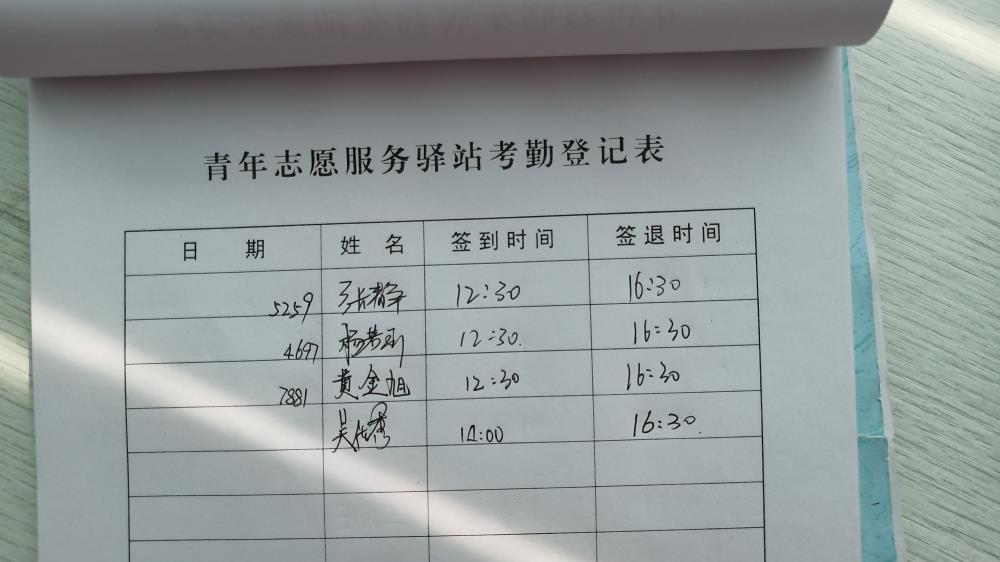 青年志愿服务驿站考勤登记表
日 期 姓 名 签到时间 签退时间
5259 张静 12:30 16:30
4697 杨 12:30. 16:30
7881 黄金旭 12:30 16:30
吴佳秀 14:00 16:30.